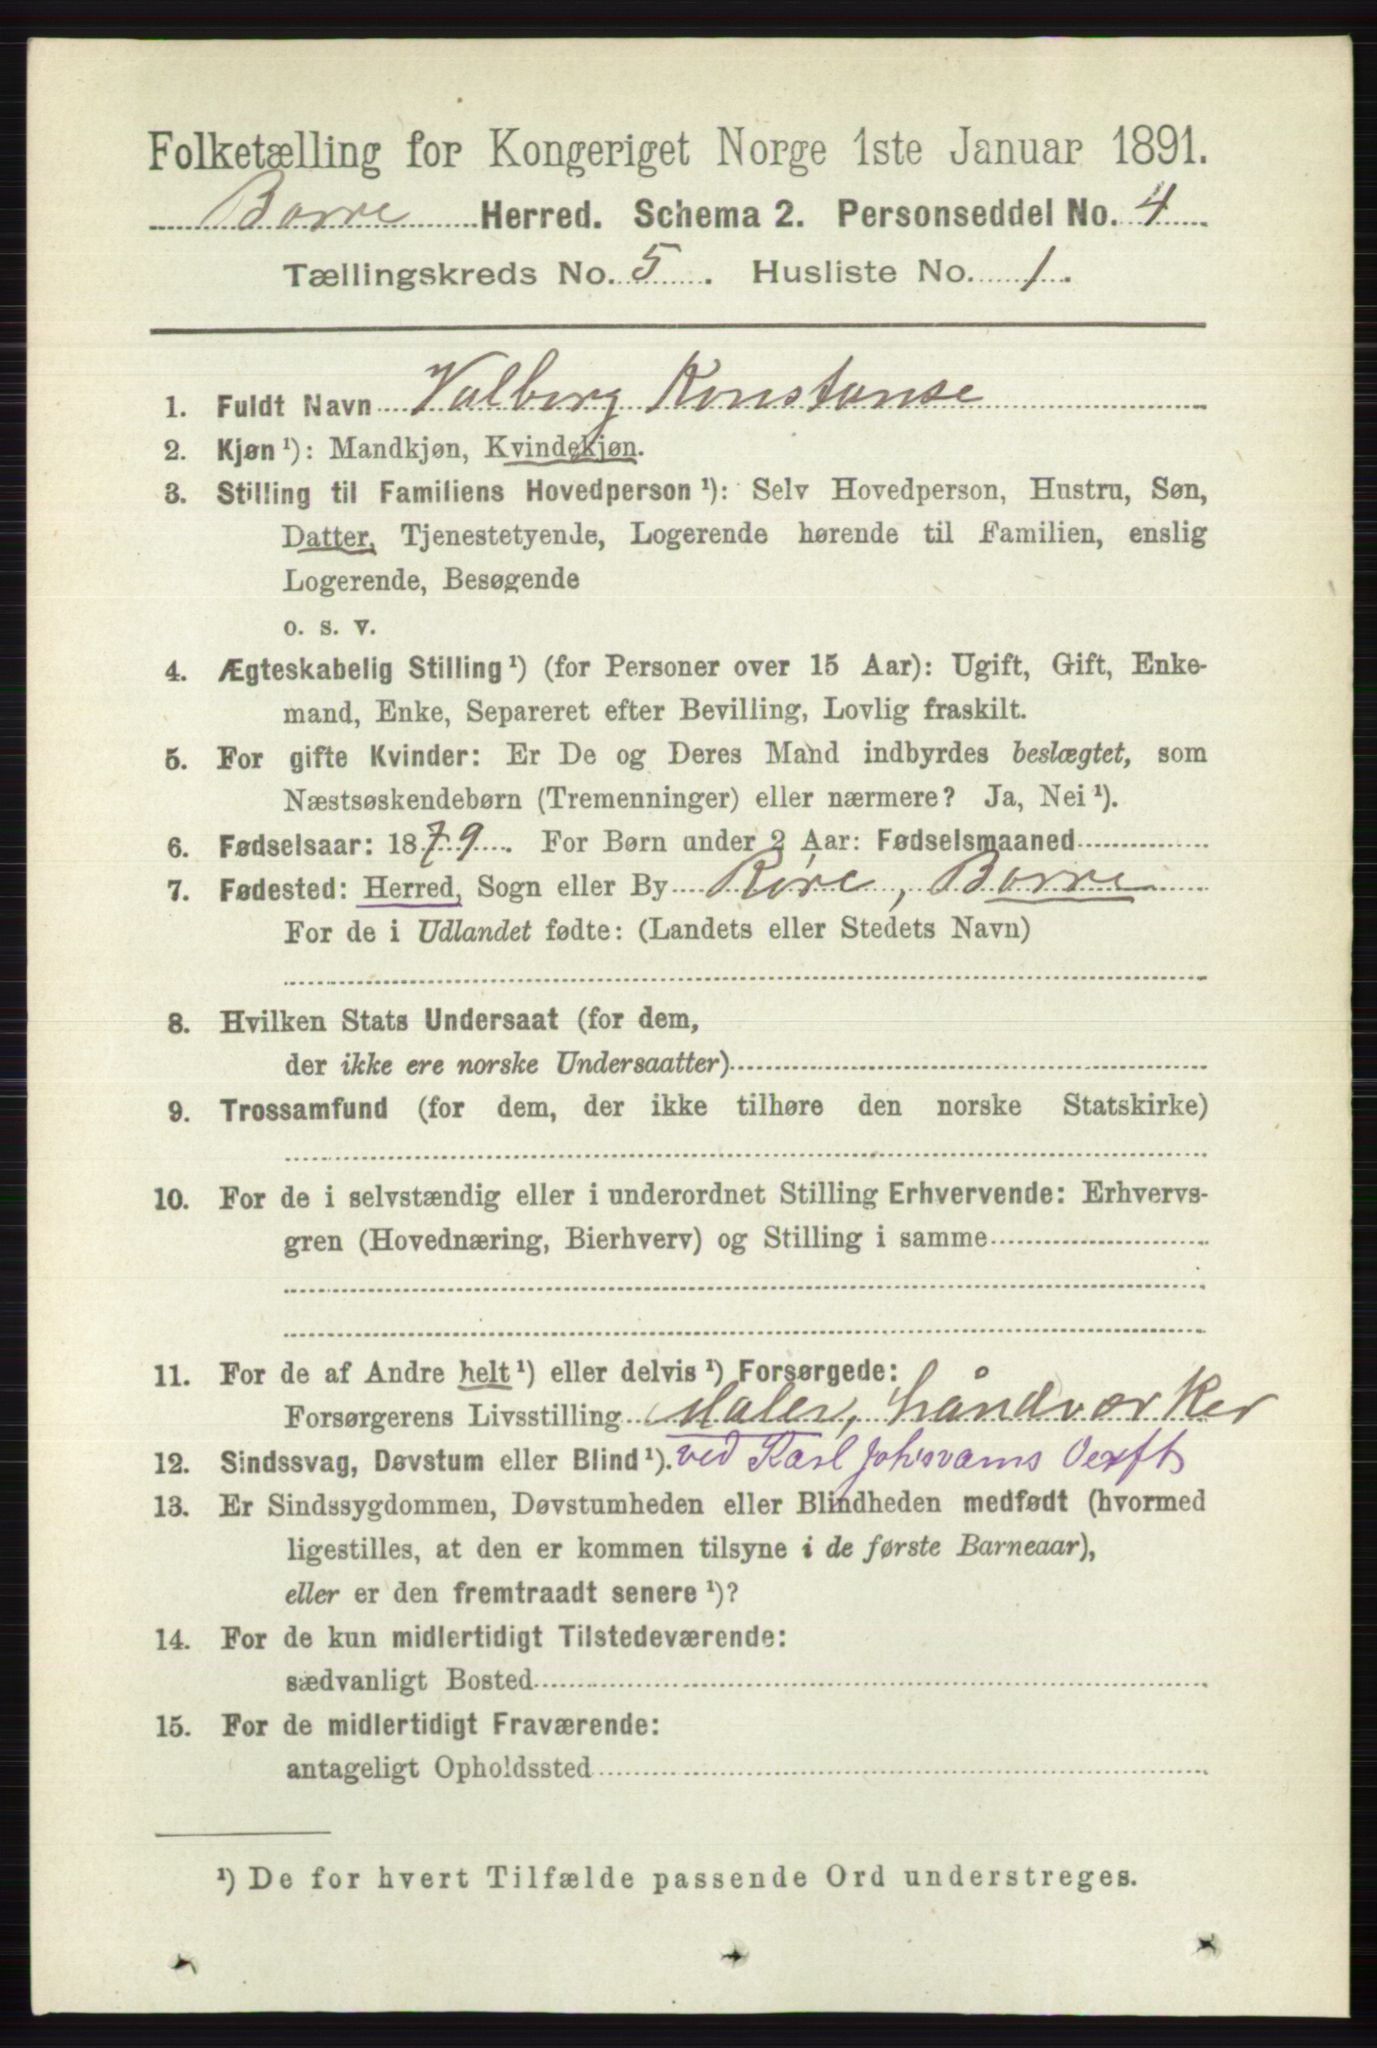 Folketælling for Kongeriget Norge 1ste Januar 1891.
Borre Herred. Schema 2. Personseddel No. 4
Tællingskreds No. 5. Husliste No. 1.
1. Fuldt Navn Valborg Konstanse
2. Kjøn ¹): Mandkjøn, Kvindekjøn.
3. Stilling til Familiens Hovedperson ¹): Selv Hovedperson, Hustru, Søn,
Datter, Tjenestetyende, Logerende hørende til Familien, enslig
Logerende, Besøgende
o. s. v.
4. Ægteskabelig Stilling ¹) (for Personer over 15 Aar): Ugift, Gift, Enke-
mand, Enke, Separeret efter Bevilling, Lovlig fraskilt.
5. For gifte Kvinder: Er De og Deres Mand indbyrdes beslægtet, som
Næstsøskendebørn (Tremenninger) eller nærmere? Ja, Nei ¹).
6. Fødselsaar: 1879. For Børn under 2 Aar: Fødselsmaaned
7. Fødested: Herred, Sogn eller By Røre, Borre
For de i Udlandet fødte: (Landets eller Stedets Navn)
8. Hvilken Stats Undersaat (for dem,
der ikke ere norske Undersaatter)
9. Trossamfund (for dem, der ikke tilhøre den norske Statskirke)
10. For de i selvstændig eller i underordnet Stilling Erhvervende: Erhvervs-
gren (Hovednæring, Bierhverv) og Stilling i samme
11. For de af Andre helt ¹) eller delvis ¹) Forsørgede:
Forsørgerens Livsstilling Maler, håndværker
12. Sindssvag, Døvstum eller Blind ¹). ved Karl Johsværns Verft
13. Er Sindssygdommen, Døvstumheden eller Blindheden medfødt (hvormed
ligestilles, at den er kommen tilsyne i de første Barneaar),
eller er den fremtraadt senere ¹)?
14. For de kun midlertidigt Tilstedeværende:
sædvanligt Bosted
15. For de midlertidigt Fraværende:
antageligt Opholdssted
¹) De for hvert Tilfælde passende Ord understreges.